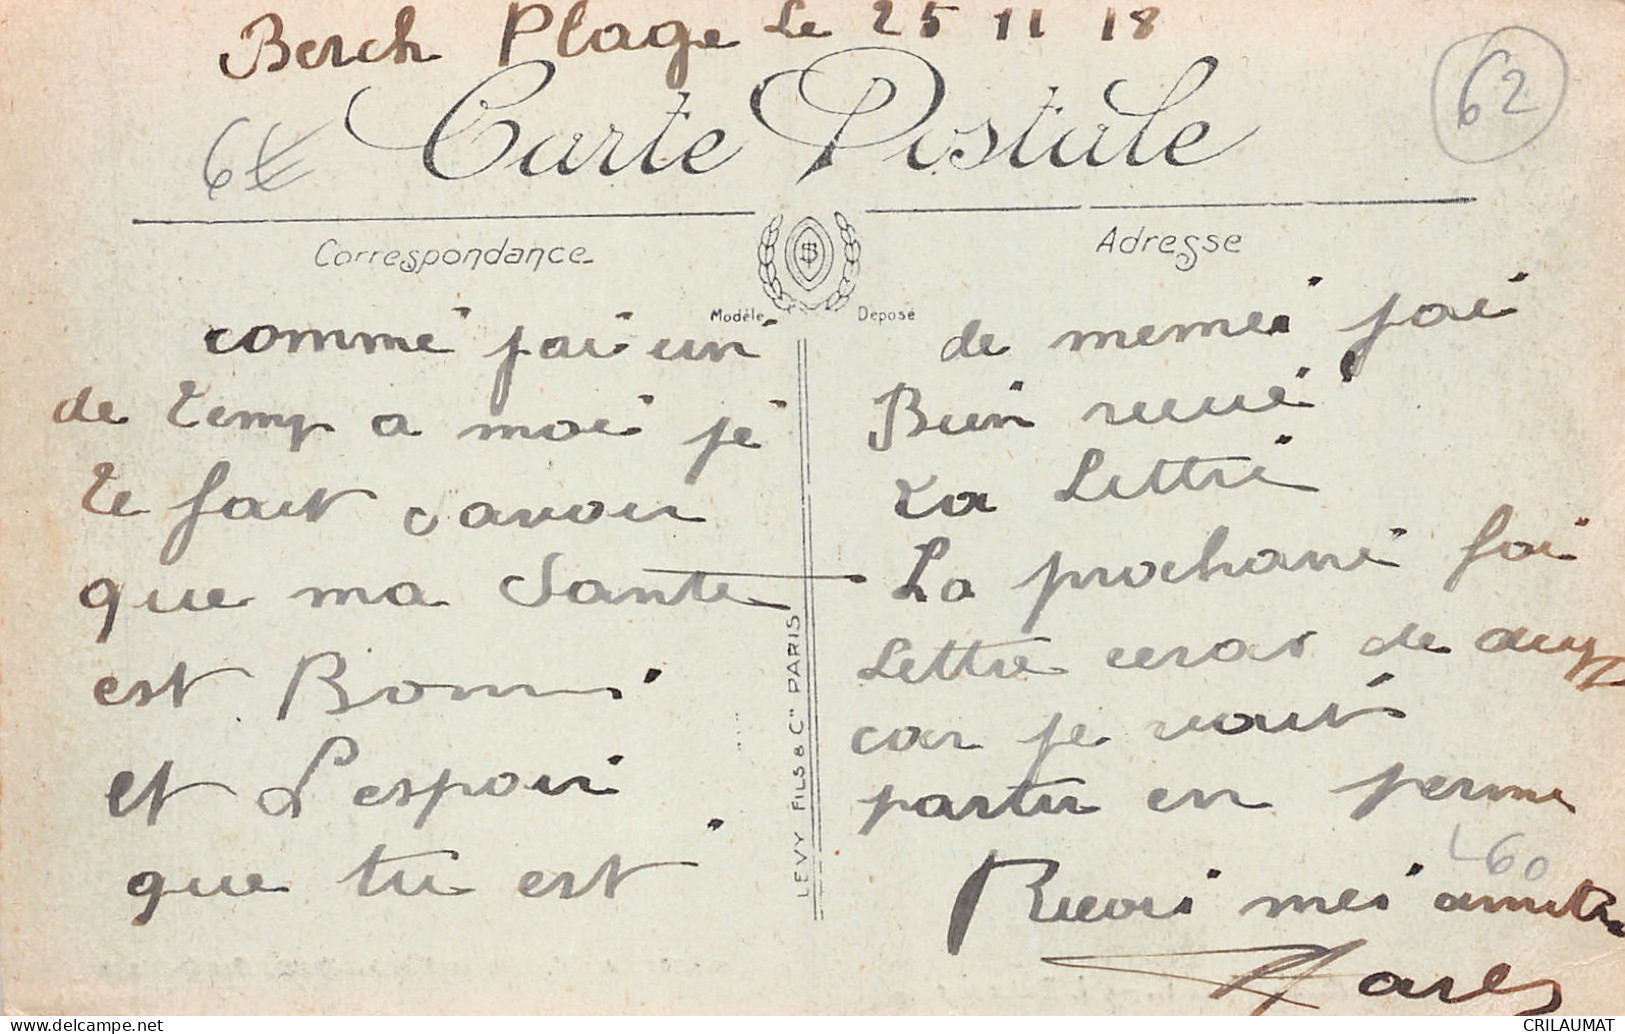 Berck Plage Le 25 11 18
62
Carte Postale
Correspondance
Adresse
Modèle Déposé
comme j'ai un
de temp a moi je
te fait savoir
que ma Sante
est Bonne
et J'espoir
que tu est
LEVY FILS & Cie PARIS
de meme j'ai
Bien reçue
ta Lettre
La prochane foi
Lettre cerat de
car je vait
partir en perme
60
Recois mes amitie
CRILAUMAT